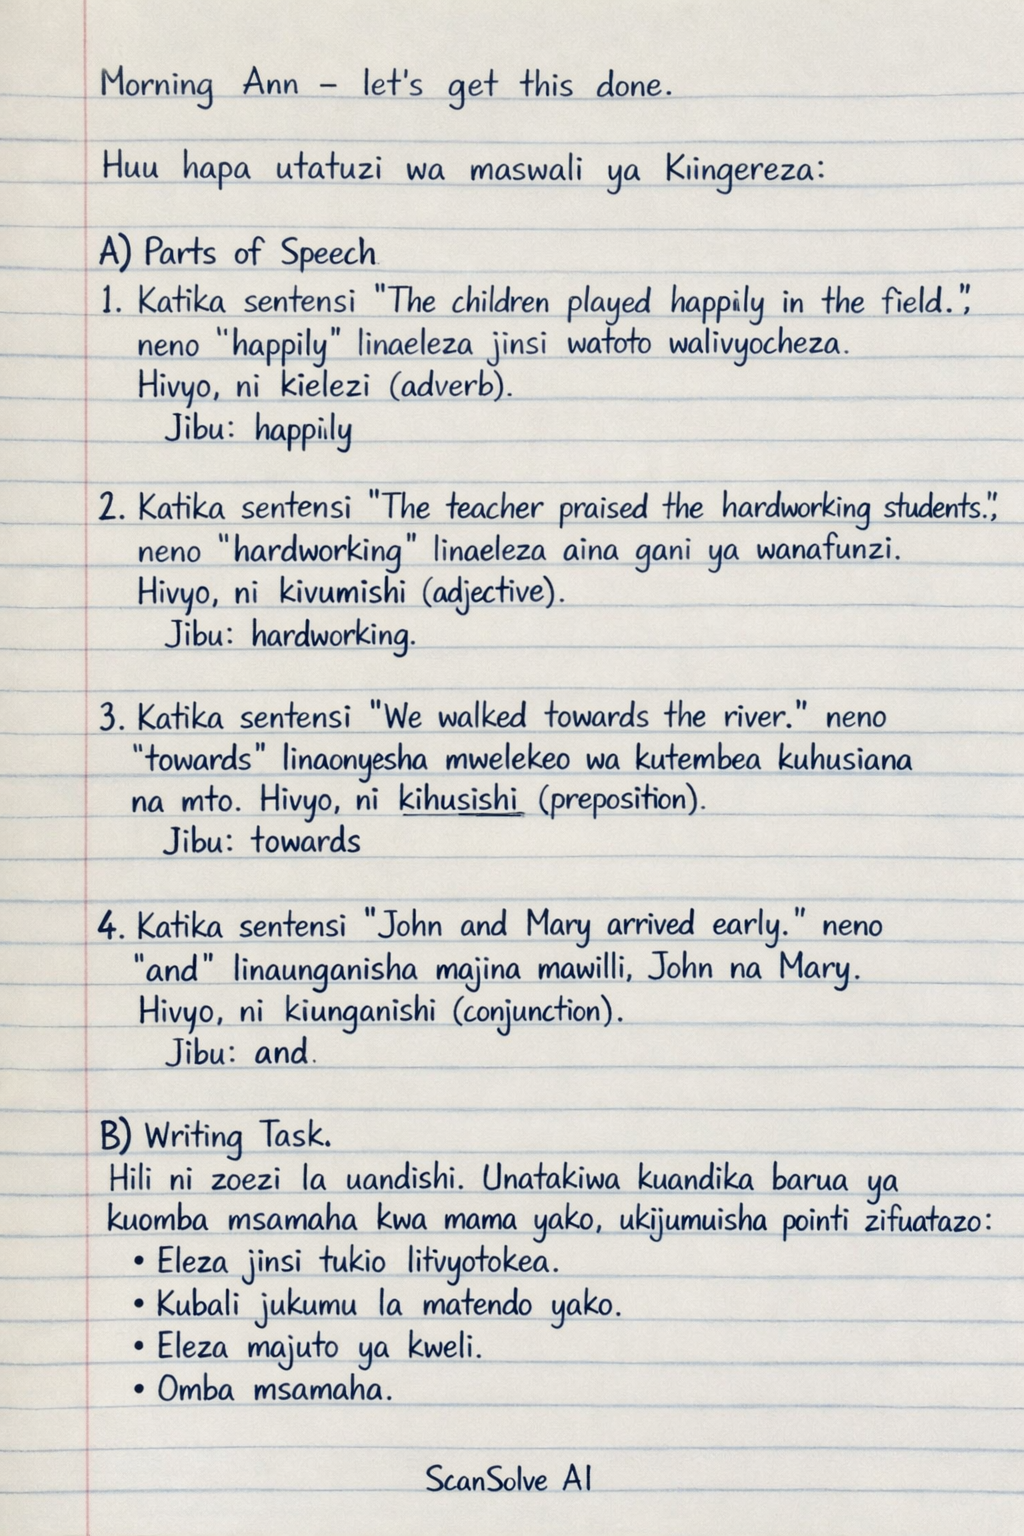 Morning Ann – let's get this done.
Huu hapa utatuzi wa maswali ya Kiingereza:
A) Parts of Speech
1. Katika sentensi "The children played happily in the field.",
neno "happily" linaeleza jinsi watoto walivyocheza.
Hivyo, ni kielezi (adverb).
Jibu: happily
2. Katika sentensi "The teacher praised the hardworking students.",
neno "hardworking" linaeleza aina gani ya wanafunzi.
Hivyo, ni kivumishi (adjective).
Jibu: hardworking.
3. Katika sentensi "We walked towards the river." neno
"towards" linaonyesha mwelekeo wa kutembea kuhusiana
na mto. Hivyo, ni kihusishi (preposition).
Jibu: towards
4. Katika sentensi "John and Mary arrived early." neno
"and" linaunganisha majina mawilli, John na Mary.
Hivyo, ni kiunganishi (conjunction).
Jibu: and.
B) Writing Task.
Hili ni zoezi la uandishi. Unatakiwa kuandika barua ya
kuomba msamaha kwa mama yako, ukijumuisha pointi zifuatazo:
• Eleza jinsi tukio litvyotokea.
• Kubali jukumu la matendo yako.
• Eleza majuto ya kweli.
• Omba msamaha.
ScanSolve AI